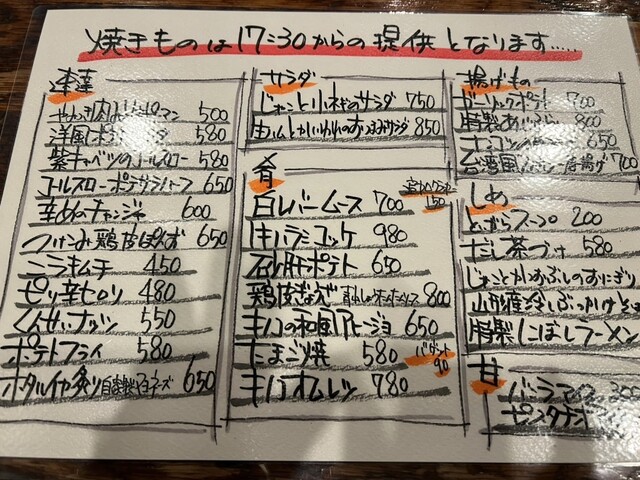 焼きものは17:30からの提供となります.....
速達
ピーマン 500
洋風ポテトサラダ 580
紫キャベツのコールスロー 580
コールスローポテサラハーフ 650
辛めのチャンジャ 600
つけこみ鶏皮ぽんず 650
ニラキムチ 450
ピリ辛セロリ 480
くんせいナッツ 550
ポテトフライ 580
ホタルイカ炙り自家製マヨネーズ 650
サラダ
じゃこと小ネギのサラダ 750
生ハムとかいわれのおつまみサラダ 850
肴
白レバームース 700
150
トキハラミユッケ 980
石少肝ポテト 650
鶏皮ぎょうざ 800
キノコの和風アヒージョ 650
たまご焼 580
90
キノコオムレツ 780
揚げもの
ガーリックポテト 700
特製 800
650
台湾風 唐揚げ 700
しめ
とりがらスープ 200
だし茶づけ 580
じゃことかつおぶしのおにぎり
山形産冷しぶっかけそば
特製にぼしラーメン
甘
バニラアイス 300
ピスタチオ